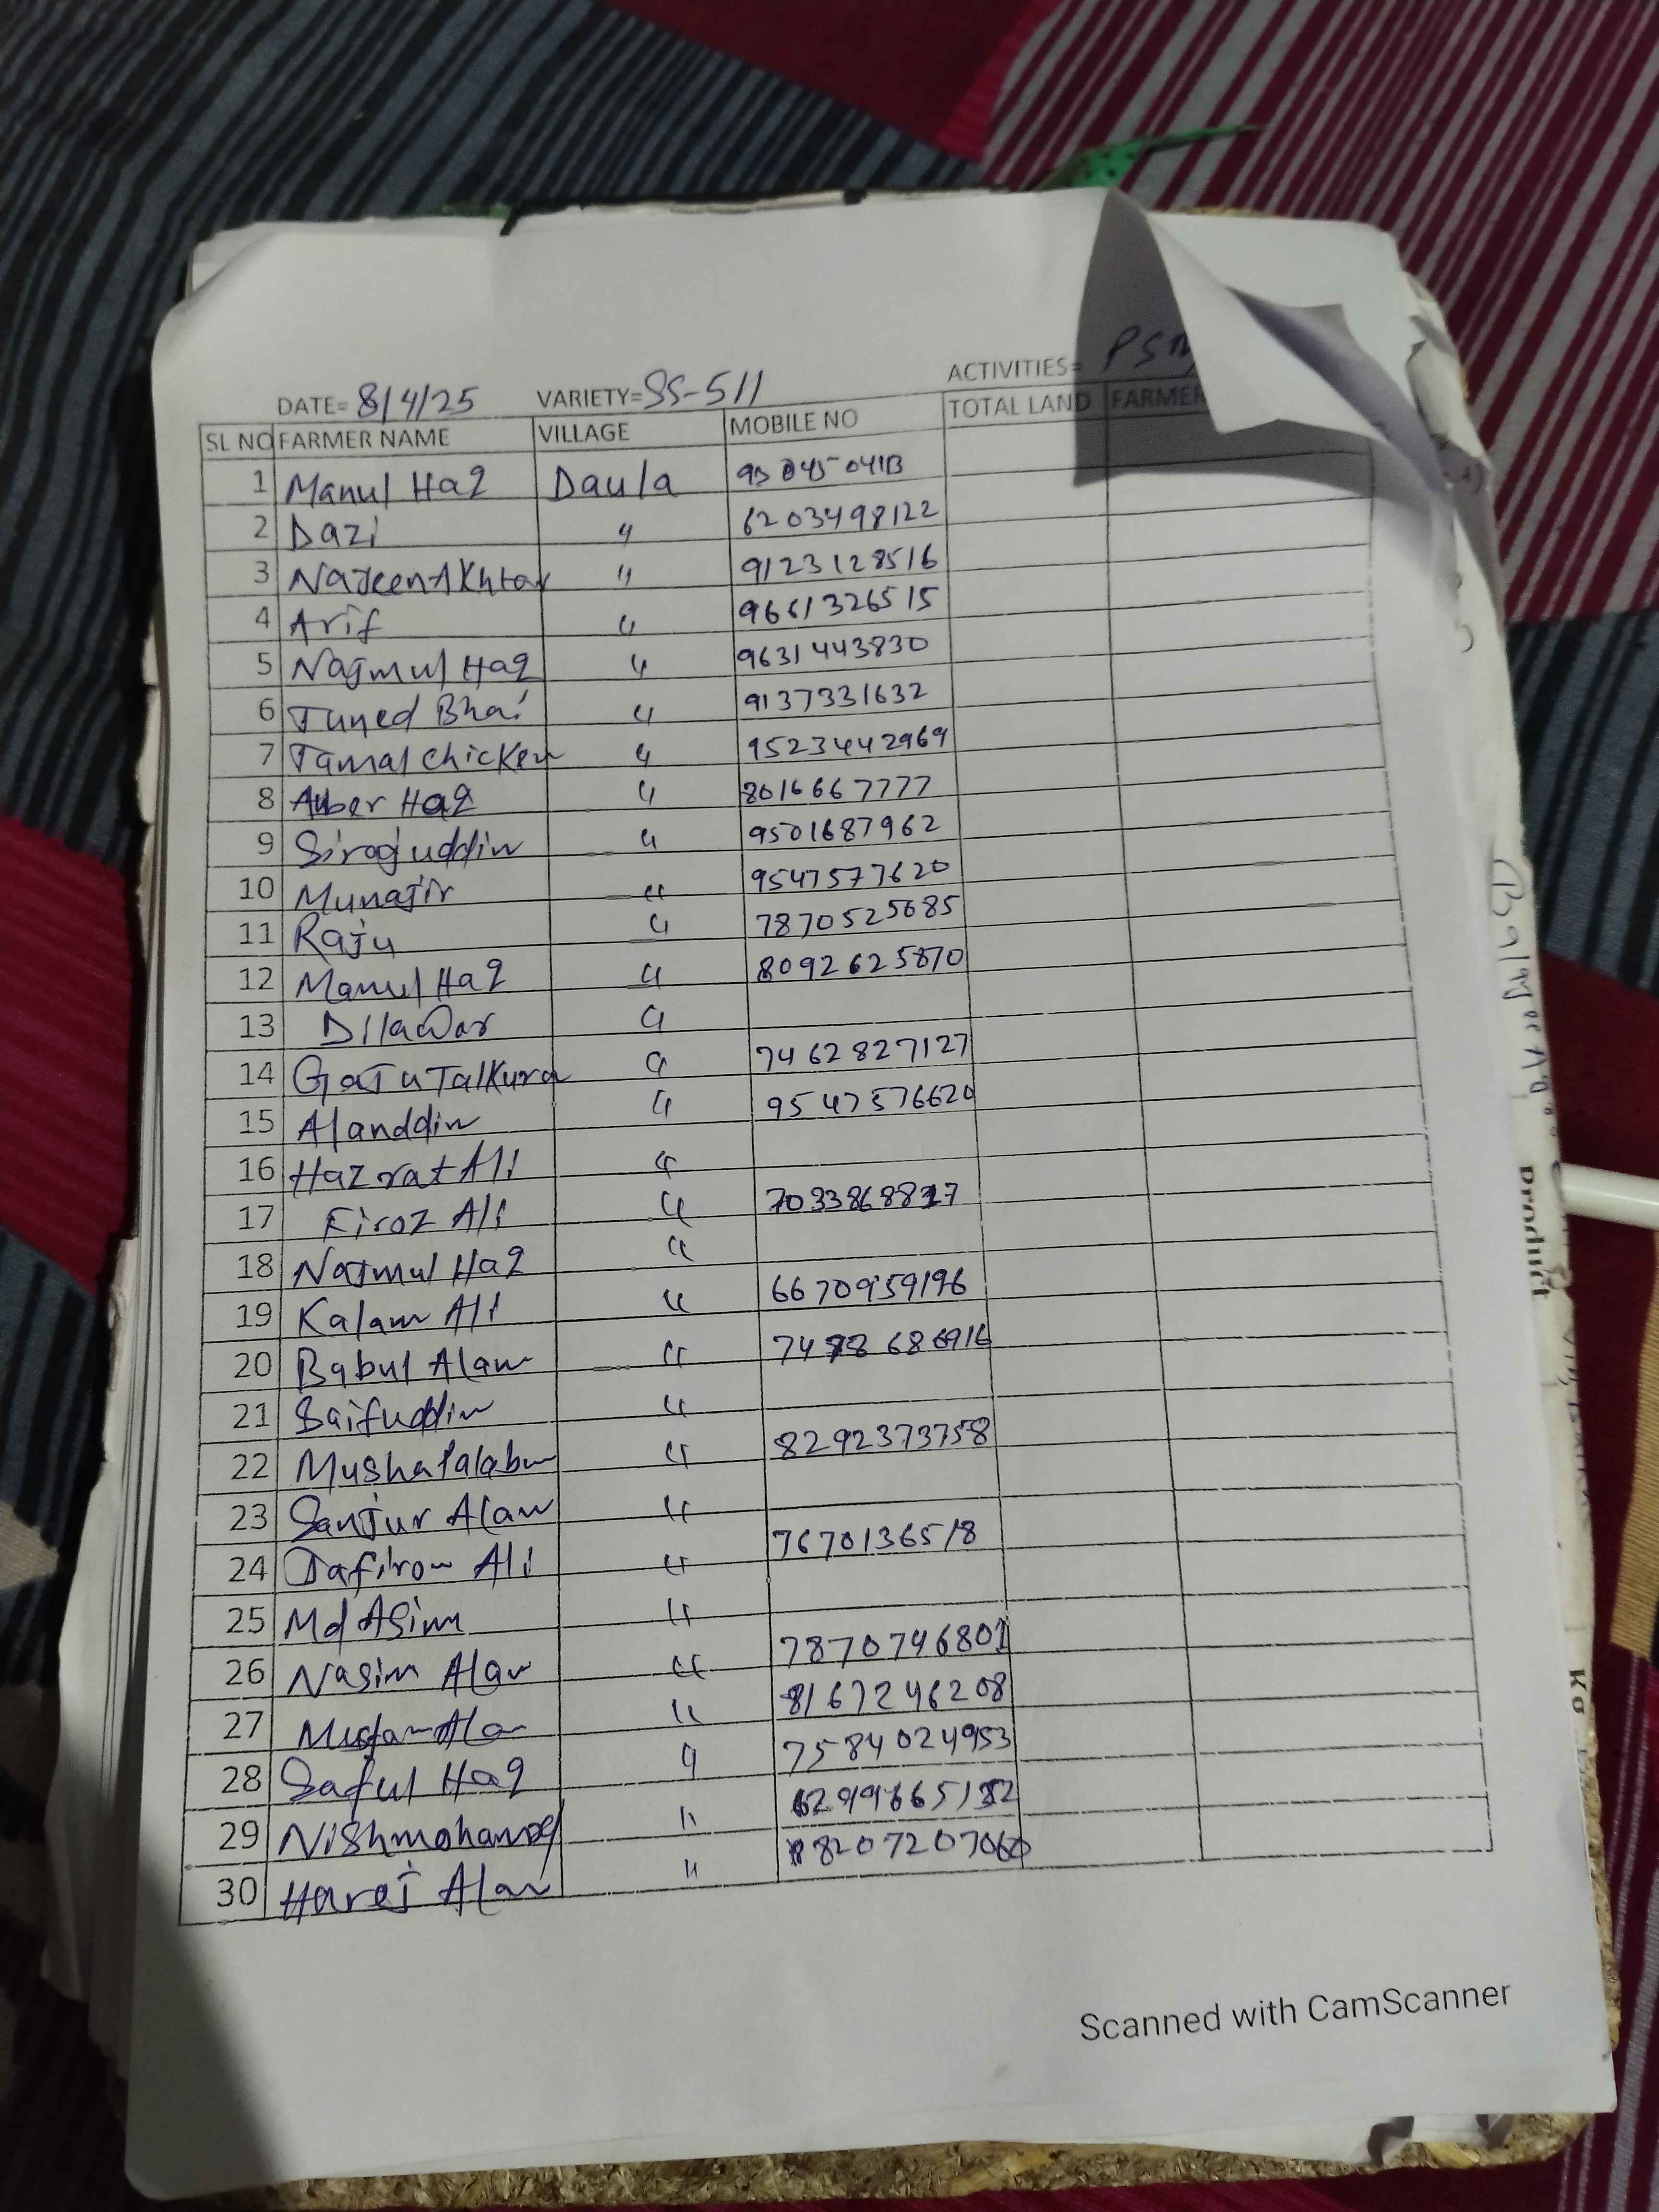 DATE= 8/4/25 VARIETY=SS-511 ACTIVITIES=
SL NO FARMER NAME VILLAGE MOBILE NO TOTAL LAND FARMER
1 Manul Haq Daula
2 Dazi " 6203498122
3 " 9123128516
4 Arif " 9661326515
5 Najmul Haq " 9631443830
6 Juned Bhai " 9137331632
7 Jamal Chicken " 9523442969
8 Haq " 8016667777
9 Sirajuddin " 9501687962
10 Munajir " 9547577620
11 Raju " 7870525685
12 Manul Haq " 8092625870
13 Dilawar "
14 " 7462827127
15 Alauddin " 9547576620
16 Hazrat Ali "
17 Firoz Ali "
18 Najmul Haq "
19 Kalam Ali " 6670959196
20 Babul Alam "
21 Saifuddin "
22 " 8292373758
23 Sanjur Alam "
24 Ali " 7670136518
25 Md Asim "
26 Nasim Alam " 7870746801
27 " 8167246208
28 Haq " 7584024953
29 "
30 Alam "
product
Kg
Scanned with CamScanner